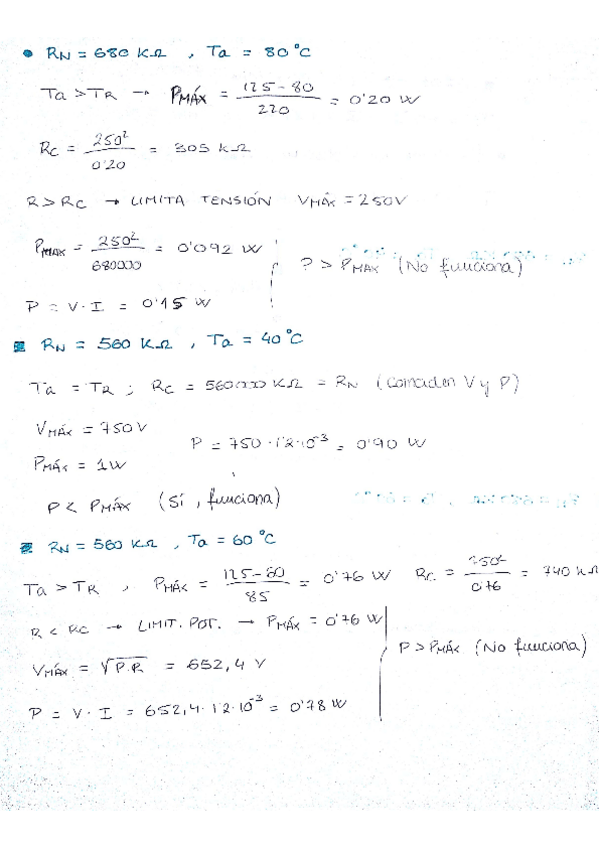 • RN = 680 KΩ , Ta = 80°C
Ta > TR → PMÁX = 125-80 / 220 = 0'20 W
RC = 250² / 0'20 = 305 KΩ
R > RC → LIMITA TENSIÓN VMÁX = 250V
PMAX = 250² / 680000 = 0'092 W
P > PMAX (No funciona)
P = V·I = 0'15 W
RN = 560 KΩ , Ta = 40°C
Ta = TR ; RC = 560000 KΩ = RN (Coinciden V y P)
VMÁX = 750V
P = 750·1'2·10⁻³ = 0'90 W
PMÁX = 1W
P < PMÁX (Sí, funciona)
RN = 560 KΩ , Ta = 60°C
Ta > TR , PMÁX = 125-60 / 85 = 0'76 W RC = 750² / 0'76 = 740 KΩ
R < RC → LIMIT. POT. → PMÁX = 0'76 W
P > PMÁX (No funciona)
VMÁX = √P.R = 652,4 V
P = V·I = 652,4·1'2·10⁻³ = 0'78 W